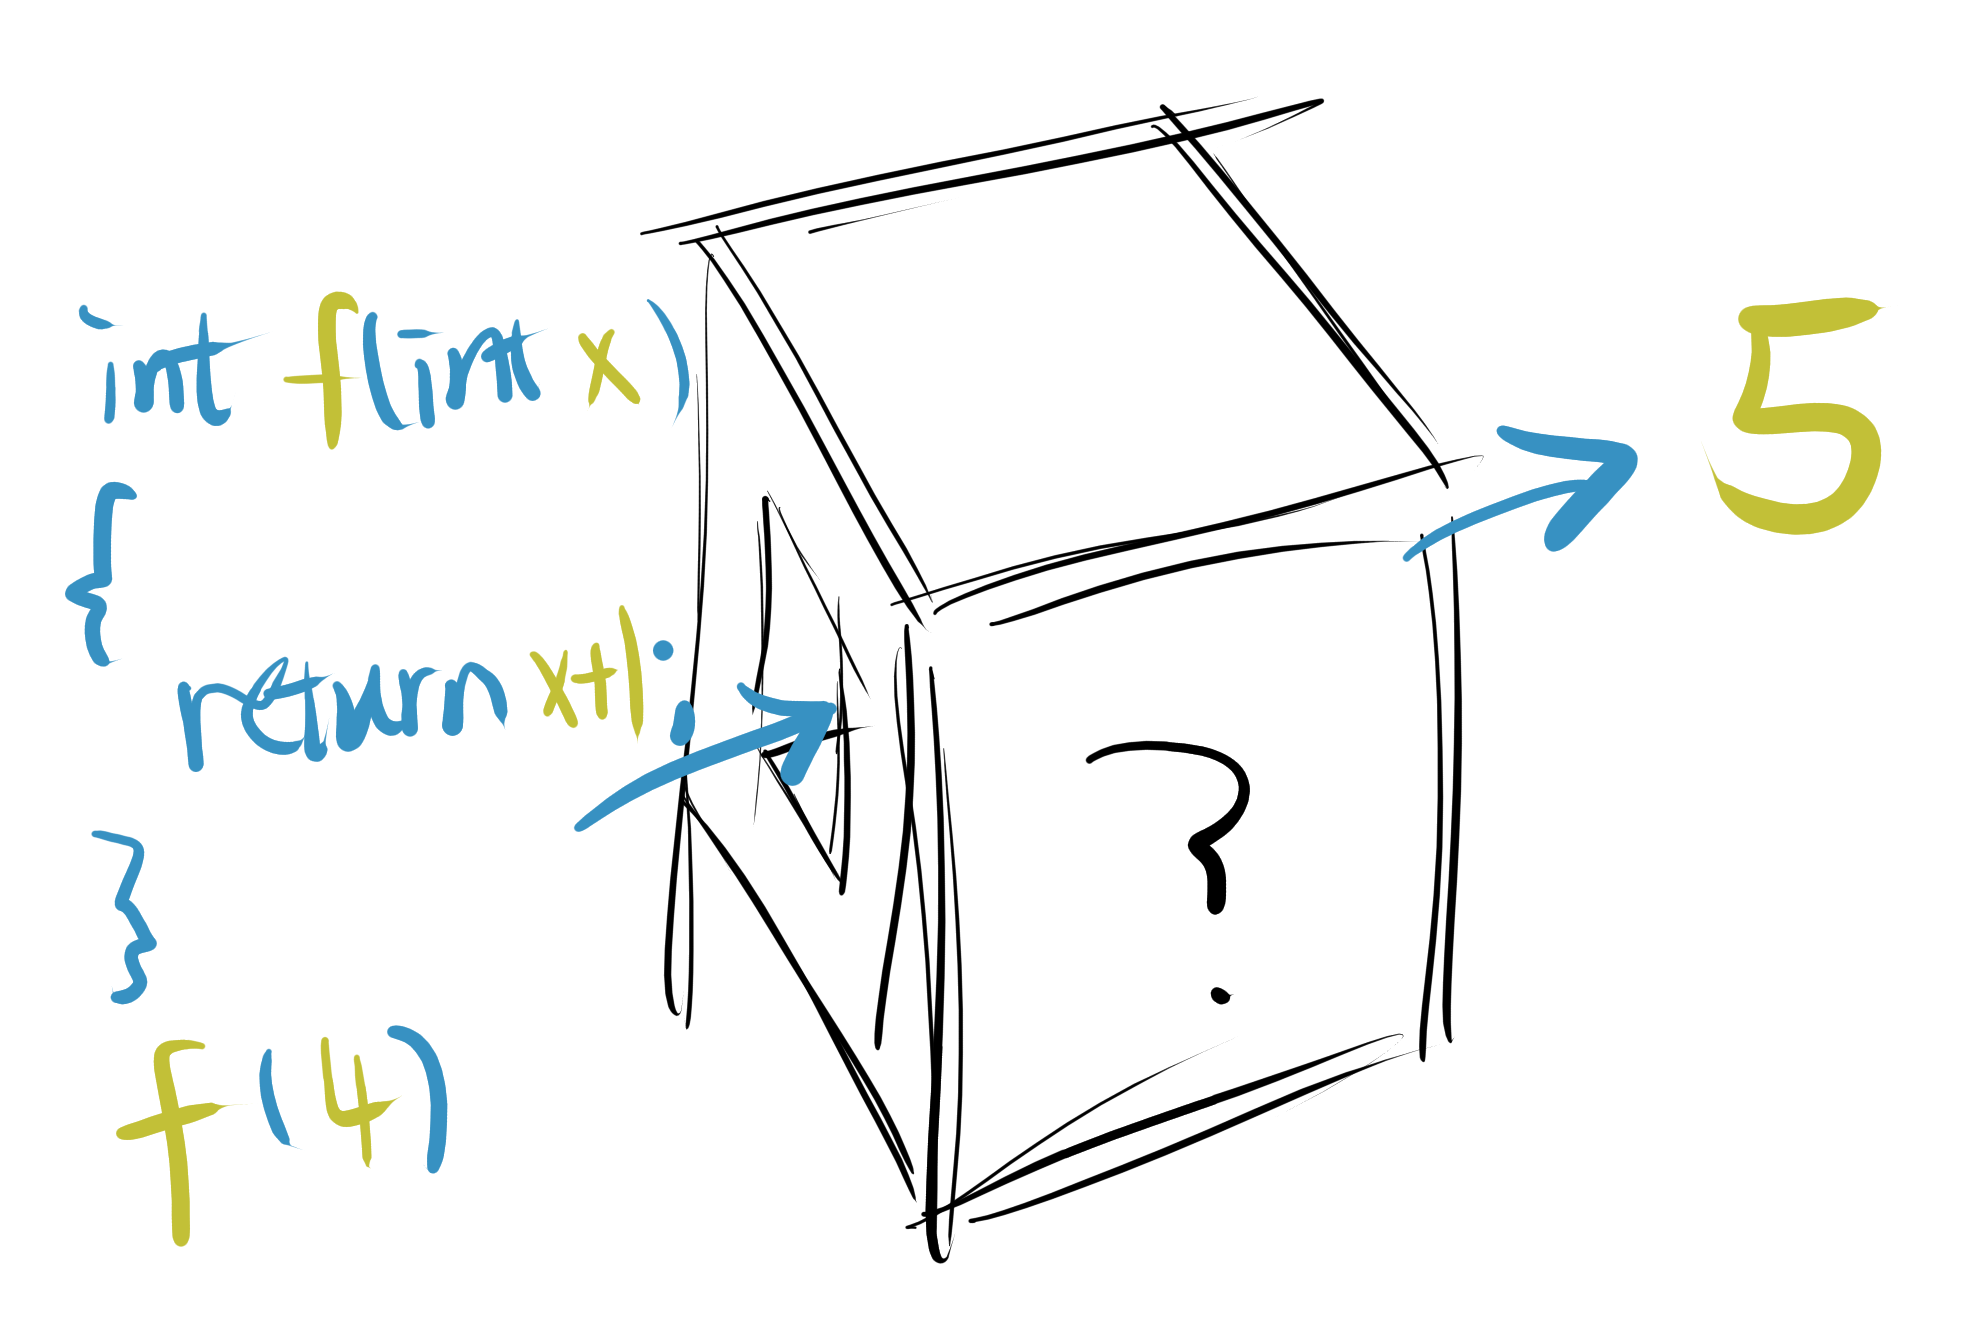 int f(int x)
{
return x+1;
}
f(4)
?
5